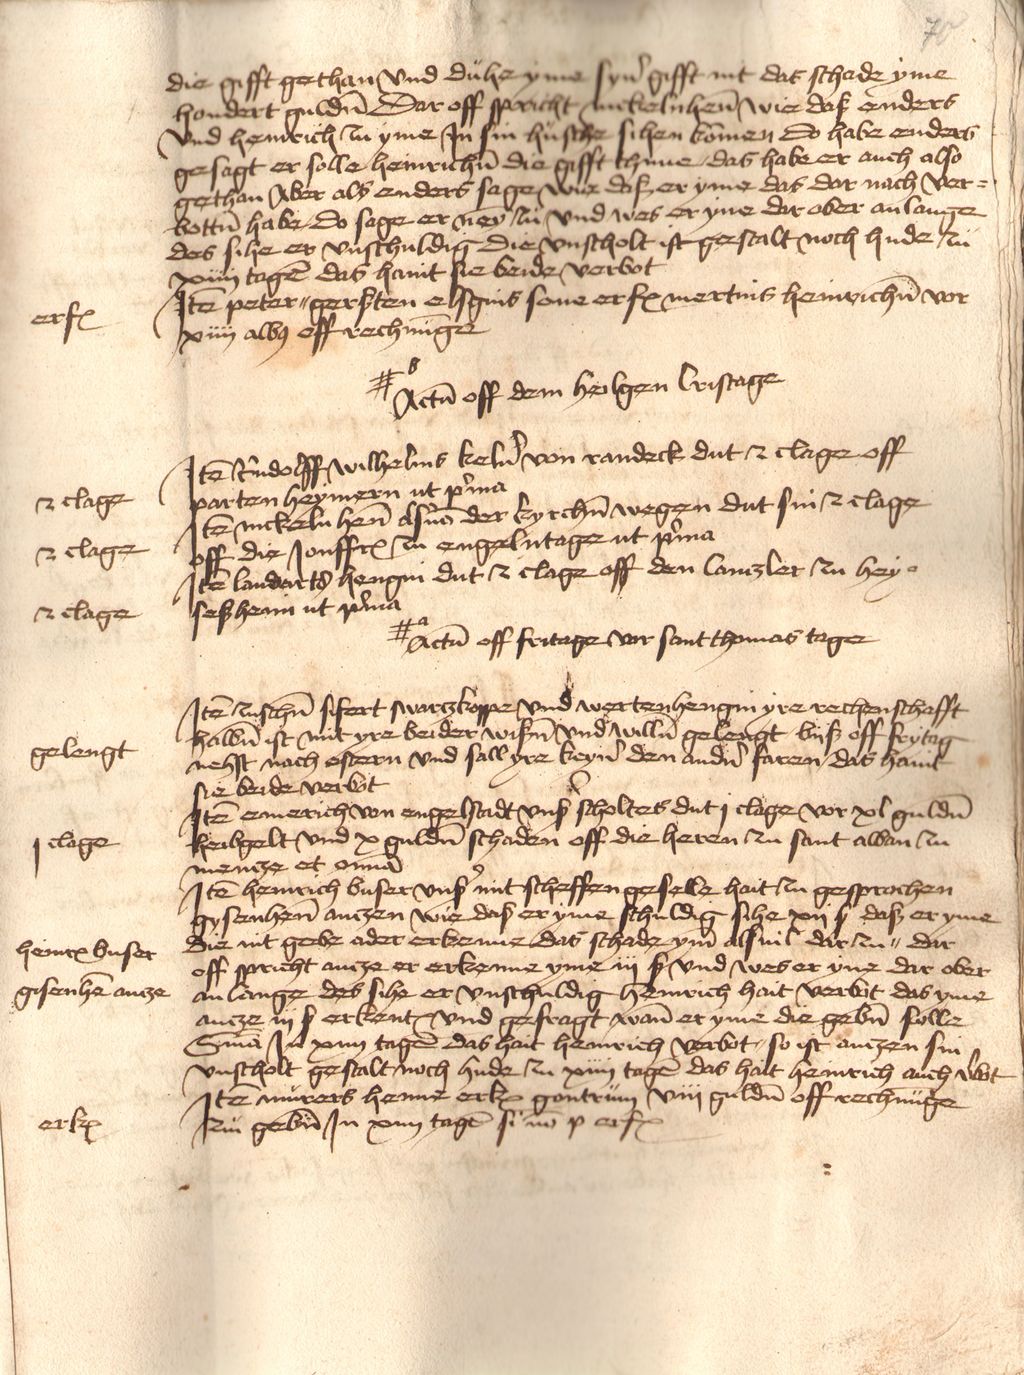 70
die gifft gethan und dühe yme syn gifft nit das schade yme
hondert guldn̄ Dar off spricht nickelnhen̄ wie daß enders
und heinrich zu yme in sin husche sihen komen Do habe enders
gesagt er solle heinrichn̄ die gifft thune das habe er auch also
gethan Aber als enders sage wie daß er yme das dar nach ver=
bottn̄ habe do sage er ney zu und wes er yne dar ober anlange
des sihe er unschuldig die unscholt ist gestalt noch hude zu
xiiii tagē das hant sie beide verbot
erk
Itē peter gersten elsgins sone erk mertins heinrichn̄ vor
xiiii alb9 off rechnūge
# b
Actū off dem heilgen Cristage
2 clage
Itē Rudolff wilhelms keln̄ von randeck dut 2 clage off
parten heymern ut p̄ma
2 clage
Itē nickeln hen̄ als vō der kyrchn̄ wegen dut sin 2 clage
off die Jonffr zu engelntage ut p̄ma
2 clage
Itē landarts hengin dut 2 clage off den Canczler zu hey
seßheim ut p̄ma
# a
Actū off fritage vor sant thomas tage
gelengt
Itē zuschn̄ sifert swarczkoppe und werten hengin yre rechenschafft
halbn̄ ist mit yre beider wißn̄ und willn̄ gelengt biß off frytag
nehst nach ostern und sall yre keyn̄ den andn̄ faren das hant
sie beide verbot
1 clage
Itē emerich von engelstadt unß scholtes dut 1 clage vor xl guldn̄
heibgelt und x guldn̄ schaden off die heren zu sant alban zu
mencze et om̄ia
heinr buser
gisenhē ancze
Itē heinrich buser unß mit scheffen geselle hait zu gesprochen
gysenhen̄ anczen wie daß er yme schuldig sihe xii ß daß er yme
die nit gebe ader erkenne das schade ym̄ als vil dar zu dar
off spricht ancze er erkenne yme iii ß und wes er yne dar ober
anlange des sihe er unschuldig heinrich hait verbot das yme
ancze iii ß erkent und gefragt wan̄ er yme die gebn̄ solle
Sm̄a In xiiii tagē das hait heinrich verbot so ist anczen sin
unscholt gestalt noch hude zu xiiii tagē das hait heinrich auch v̄bot
erk
Itē mürers henne erk gontrum viii guldn̄ off rechnūge
zu gebn̄ In xiiii tagē si nō p erk